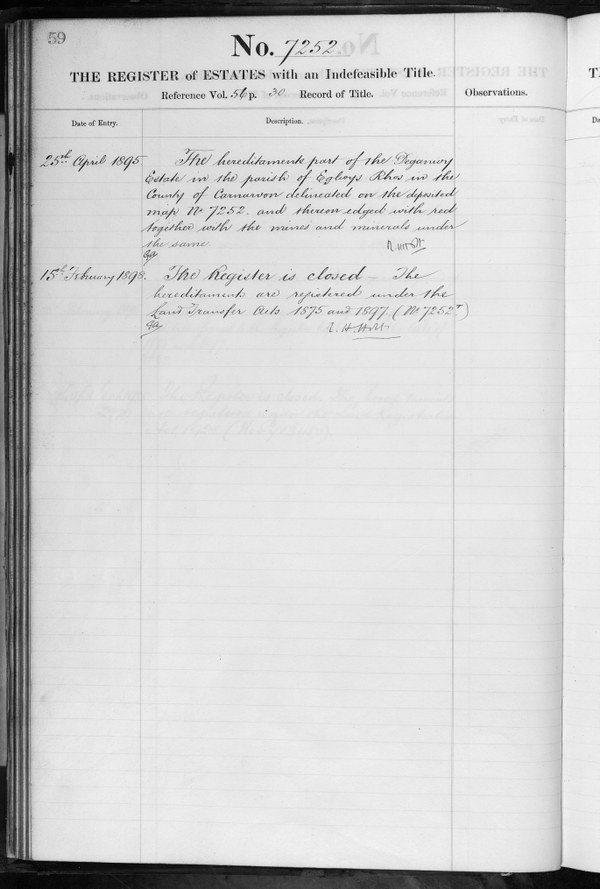 59
No. 7252
THE REGISTER of ESTATES with an Indefeasible Title.
Reference Vol. 56 p. 30 Record of Title.
Observations.
Date of Entry.
Description.
25th April 1895
The hereditaments part of the Deganwy
Estate in the parish of Eglwys Rhos in the
County of Carnarvon delineated on the deposited
map No 7252. and thereon edged with red
together with the mines and minerals under
the same
R. H. Holt
15th February 1898.
The Register is closed – The
hereditaments are registered under the
Land Transfer Acts 1875 and 1897 (No 7252T)
R. H. Holt